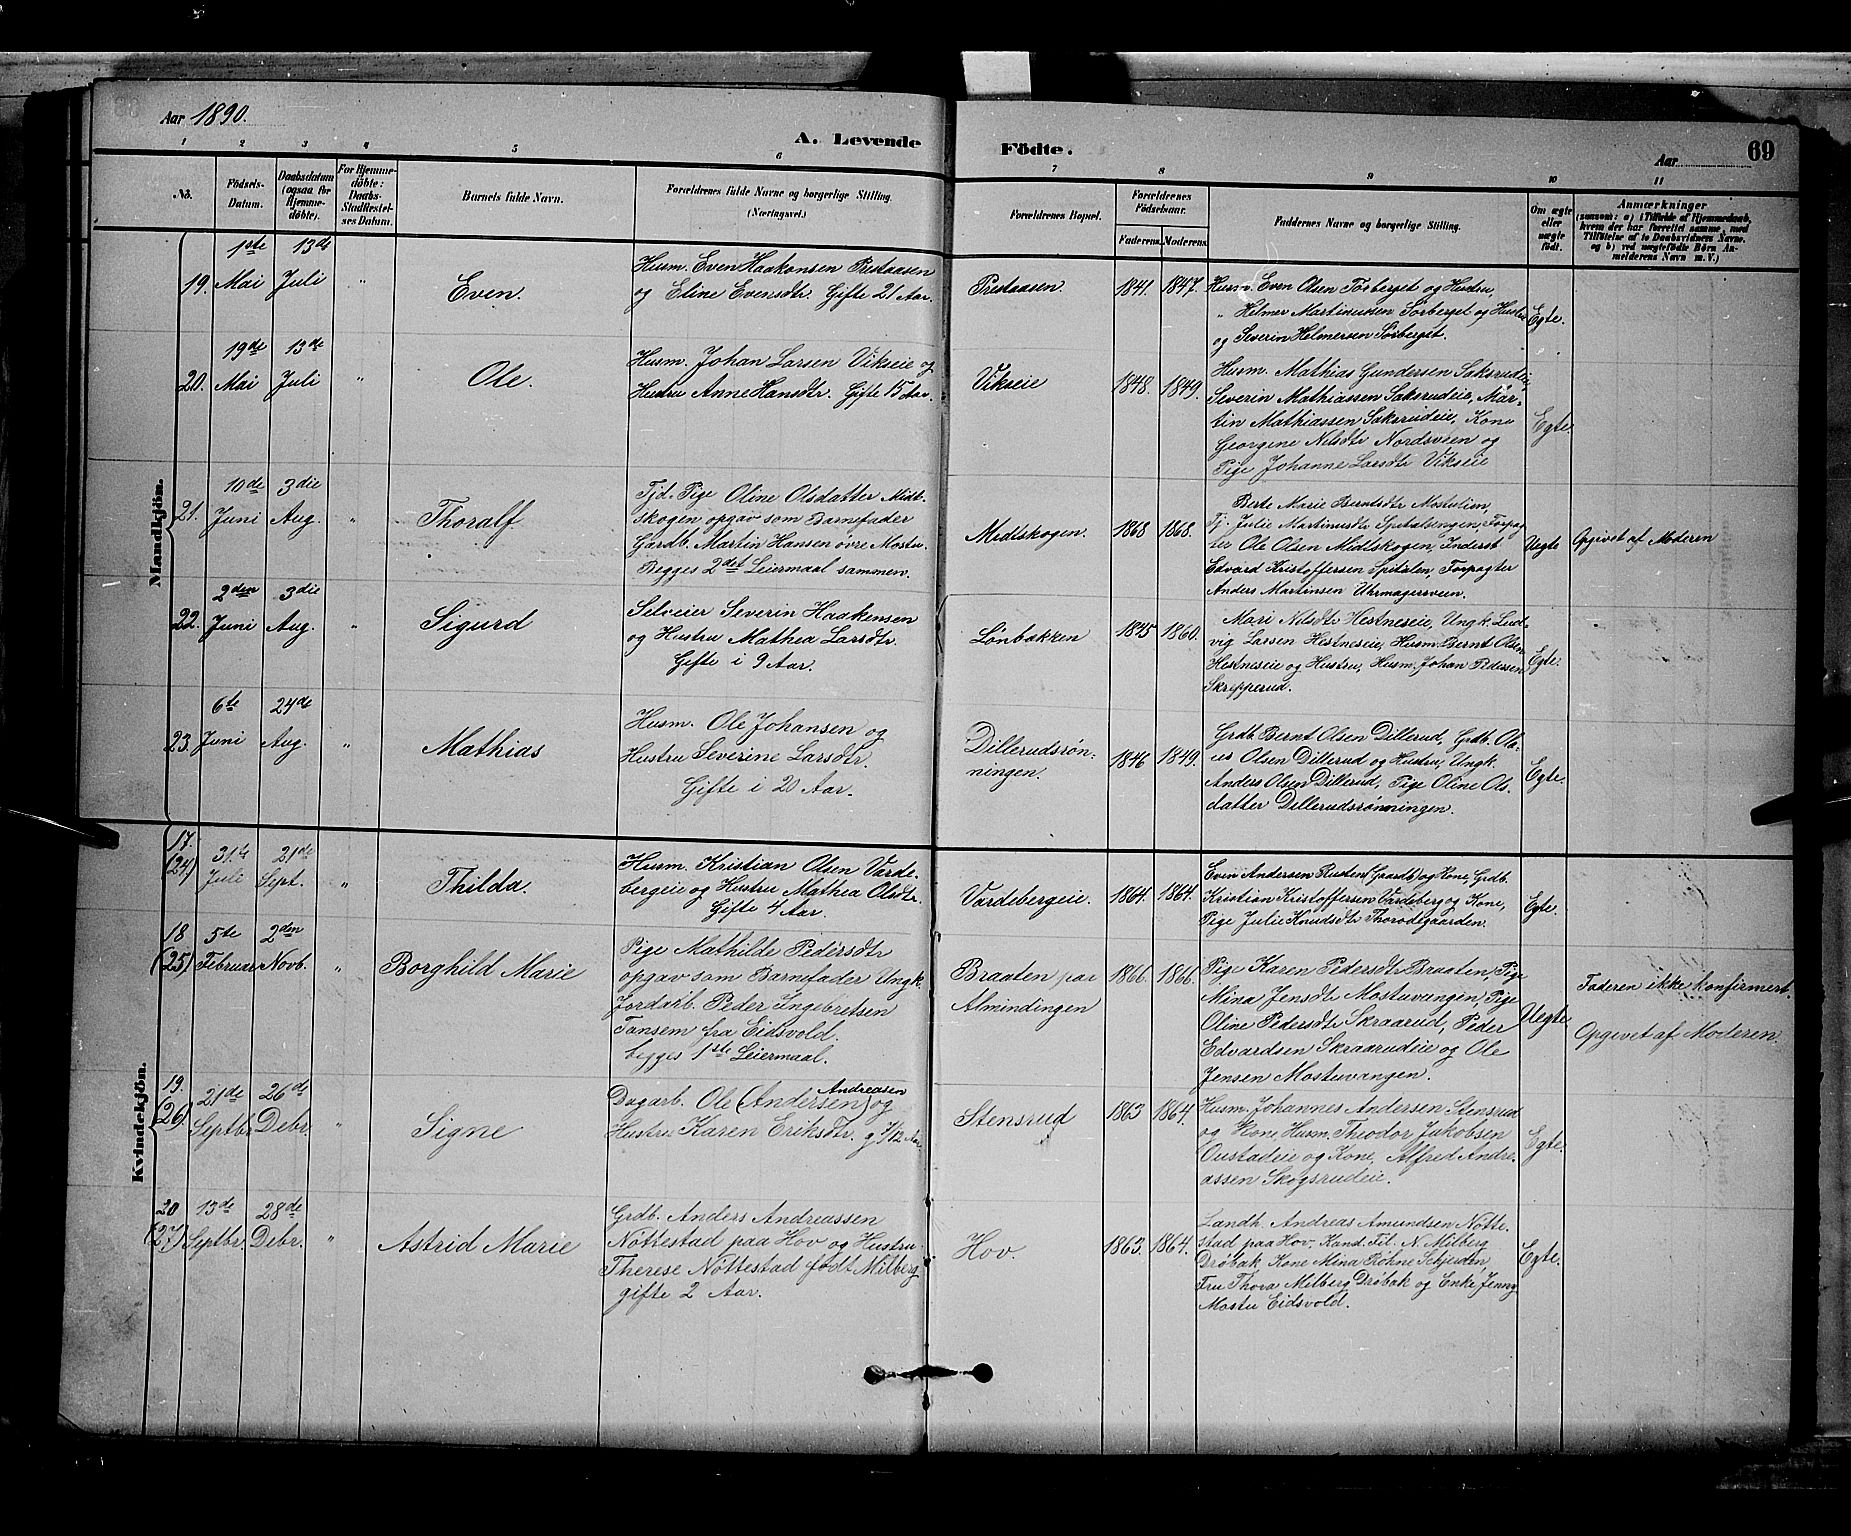 Aar 1890.
A. Levende Födte.
Aar 69
1 2 3 4 5 6 7 8 9 10 11
No.
Födsels-
Datum.
Daabsdatum
(ogsaa for
Hjemme-
döbte).
For Hjemme-
döbte:
Daabs-
Stadfæstel-
ses Datum.
Barnets fulde Navn.
Forældrenes fulde Navne og borgerlige Stilling.
(Næringsvei.)
Forældrenes Bopæl.
Forældrenes
Födselsaar.
Faderens. Moderens.
Faddernes Navne og borgerlige Stilling.
Om ægte
eller
uægte
födt.
Anmærkninger
(saasom: a) i Tilfælde af Hjemmedaab,
hvem der har forrettet samme, med
Tilföielse af to Daabsvidners Navne,
og b) ved uægtefödte Börn An-
melderens Navn m. V.)
Mandkjön.
19.
1ste
Mai
13de
Juli
"
Even.
Husm. Even Haakonsen Prestaasen
og Eline Evensdtr. Gifte 21 Aar.
Prestaasen
1841. 1847.
Husm. Even Olsen Törberget og Hustru,
" Helmer Martinusen Sörberget og Hustru
og Severin Helmersen Sörberget.
Egte.
20.
19de
Mai
13de
Juli
"
Ole.
Husm. Johan Larsen Vikseie og
Hustru Anne Hansdtr. Gifte 15 Aar.
Vikseie
1848. 1849.
Husm. Mathias Gundersen Saksrudeie,
Severin Mathiassen Saksrudeie, Mar-
tin Mathiassen Saksrudeie, Kone
Georgene Nilsdtr Nordsveen og
Pige Johanne Larsdtr Vikseie
Egte.
21.
10de
Juni
3die
Aug.
"
Thoralf
Tjd. Pige Oline Olsdatter Midt-
skogen opgav som Barnefader
Gardb. Martin Hansen övre Mostu.
Begges 2det Leiermaal sammen.
Midtskogen.
1868 1868.
Berte Marie Berntsdtr Mostulien,
Tj. Julie Martinusdtr Spetalsengen, Forpag-
ter Ole Olsen Midtskogen, Inderst
Edvard Kristoffersen Spitalen, Forpagter
Anders Martinsen Uhrmagersveen.
Uegte
Opgivet af Moderen
22.
2den
Juni
3die
Aug.
"
Sigurd
Selveier Severin Haakensen
og Hustru Mathea Larsdtr.
Gifte i 9 Aar.
Lönbakken
1845 1860.
Mari Nilsdtr Hestneseie, Ungk. Lud-
vig Larsen Hestneseie, Husm. Bernt Olsen
Hestneseie og Hustru, Husm. Johan Pedersen
Skrepperud.
Egte.
23.
6te
Juni
24de
Aug.
"
Mathias
Husm. Ole Johansen og
Hustru Severine Larsdtr.
Gifte i 20 Aar.
Dillerudsrön-
ningen.
1846 1849.
Grdb. Bernt Olsen Dillerud, Grdb. Ola-
us Olsen Dillerud og Hustru, Ungk.
Anders Olsen Dillerud, Pige Oline Ols-
datter Dillerudsrönningen.
Egte.
Kvindekjön.
17.
(24)
31te
Juli
21de
Sept.
"
Thilda.
Husm. Kristian Olsen Varde-
bergeie og Hustru Mathea Olsdtr.
Gifte 4 Aar.
Vardebergeie.
1864. 1864.
Even Andersen Rusten (Gaardb) og Kone, Grdb.
Kristian Kristoffersen Vardeberg og Kone,
Pige Julie Knudsdtr Thorodgaarden.
Egte.
18
(25)
5te
Februar
2den
Novb.
"
Borghild Marie
Pige Mathilde Pedersdtr
opgav som Barnefader Ungk.
Jordarb. Peder Ingebretsen
Tansem fra Eidsvold.
begges 1ste Leiermaal.
Braaten paa
Almindingen
1866. 1866.
Pige Karen Pedersdtr Braaten, Pige
Mina Jensdtr Mostuvangen, Pige
Oline Pedersdtr Skraarud, Peder
Edvardsen Skraarudeie og Ole
Jensen Mostuvangen.
Uegte
Faderen ikke konfirmert.
Opgivet af Moderen.
19.
(26)
21de
Septbr
26de
Debr.
"
Signe
Andreasen
Dagarb. Ole (Andersen) og
Hustru Karen Eriksdtr. g 7/12 Aar
Stensrud
1863 1864.
Husm. Johannes Andersen Stensrud
og Kone, Husm. Theodor Jakobsen
Oustadeie og Kone, Alfred Andre-
assen Skogsrudeie.
Egte.
20
(27)
13de
Septbr.
28de
Debr.
"
Astrid Marie
Grdb. Anders Andreassen
Nöttestad paa Hov og Hustru
Therese Nöttestad födt Milberg
gifte 2 Aar.
Hov.
1863. 1864.
Landh. Andreas Amundsen Nötte-
stad paa Hov, Kand. Fil. N. Milberg
Dröbak Kone Mina Röhne Schjerden,
Fru Thora Milberg Dröbak og Enke Jenny
Mostu Eidsvold.
Egte.